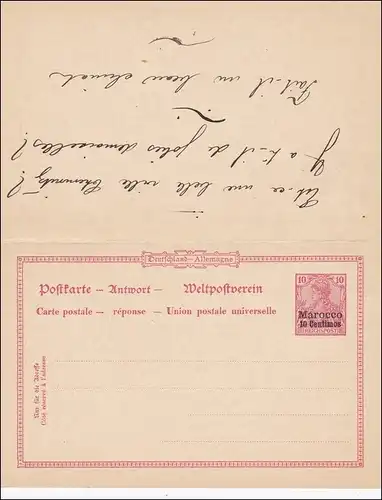 Est-ce une belle ville Chemnitz?
Y a-t-il de jolies demoiselles?
Fait-il un beau climat
Deutschland – Allemagne
Postkarte – Antwort – Weltpostverein
Carte postale – réponse – Union postale universelle
10 10
Marocco
10 Centimos
REICHSPOST
Nur für die Adresse
Côté réservé à l'adresse